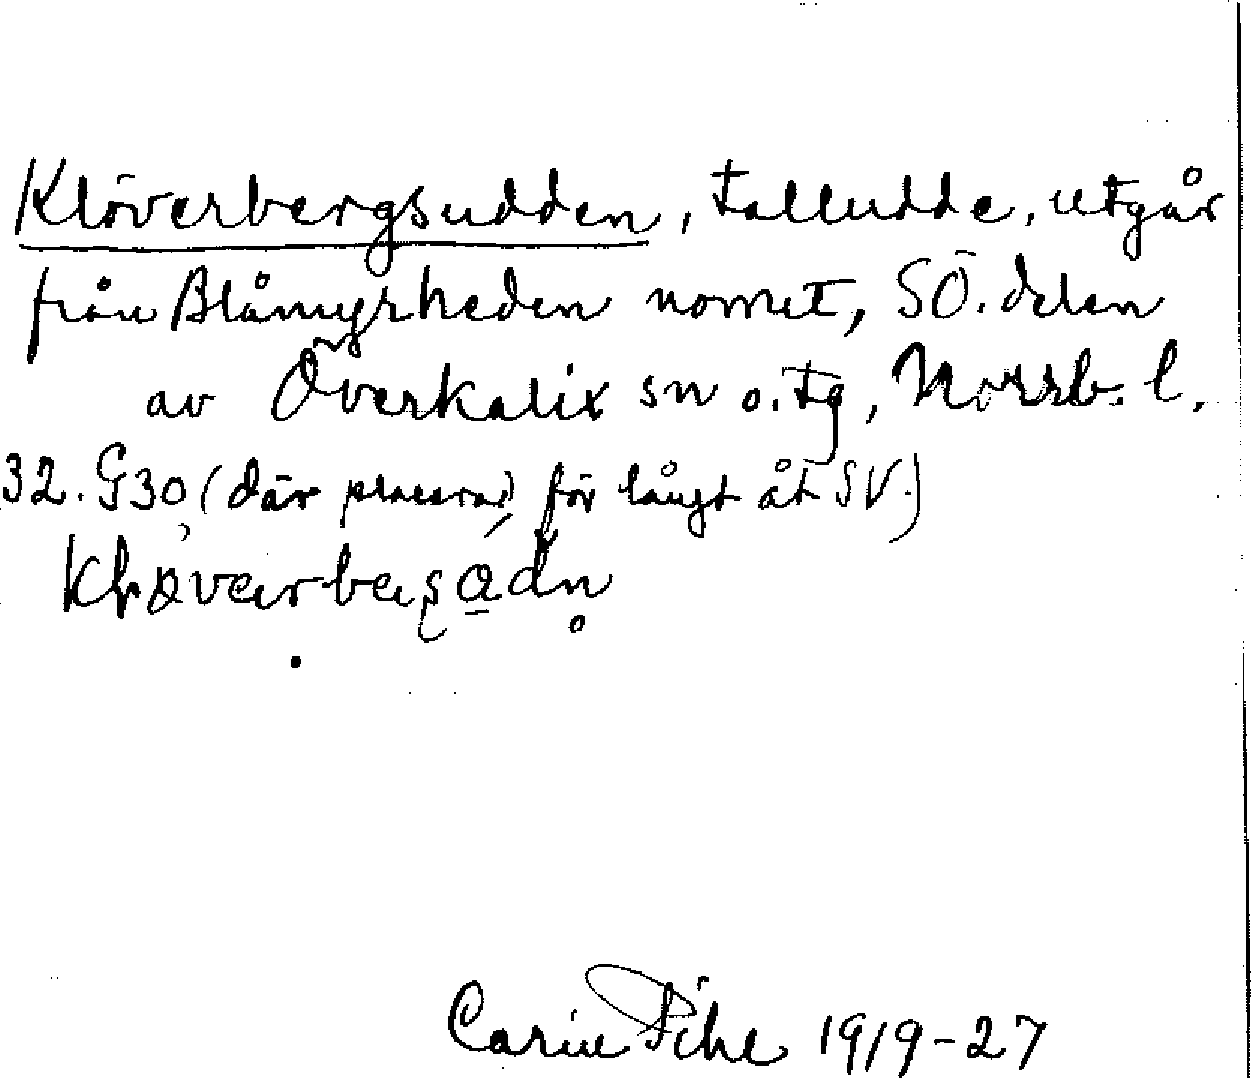 Klöverbergsudden, talludde, utgår
från Blåmyrheden norrut, SÖ. delen
av Överkalix sn o. tg, Norrb. l.
32. G30 (där placerad för långt åt SV.)
Carin Pihl 1919-27